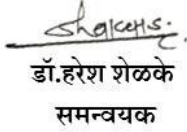 डॉ.हरेश शेळके
समन्वयक